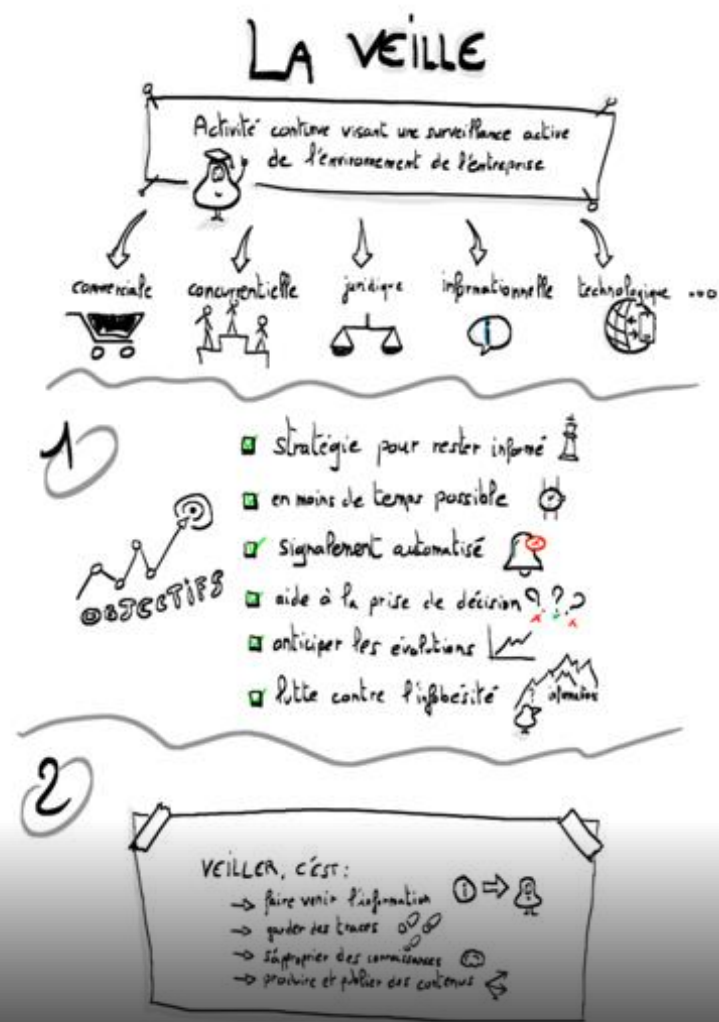 LA VEILLE
Activité continue visant une surveillance active
de l'environement de l'entreprise
commerciale concurrentielle juridique informationnelle technologique ...
i
1
OBJECTIFS
stratégie pour rester informé
en moins de temps possible
signalement automatisé
aide à la prise de décision ? ? ?
anticiper les évolutions
lutte contre l'infobésité
information
2
VEILLER, C'EST :
→ faire venir l'information i
→ garder des traces
→ s'approprier des connaissances
→ produire et publier des contenus